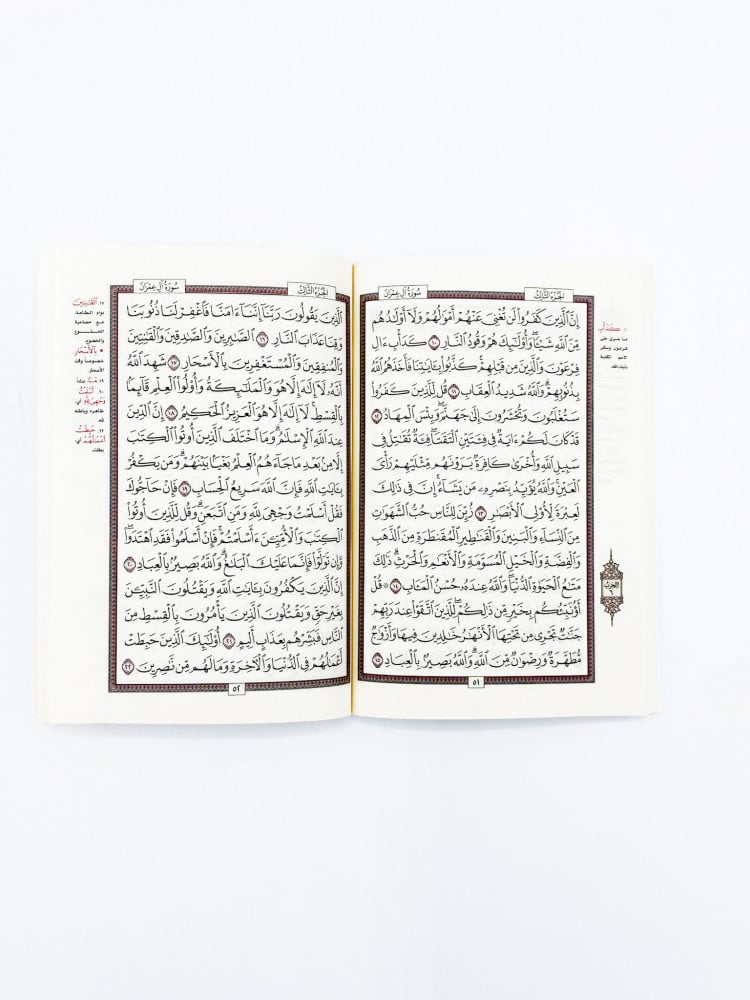 سُورَةُ آلِ عِمْرَانَ
الجُزْءُ الثَّالِثُ
إِنَّ ٱلَّذِينَ كَفَرُوا۟ لَن تُغْنِىَ عَنْهُمْ أَمْوَٰلُهُمْ وَلَآ أَوْلَٰدُهُم
مِّنَ ٱللَّهِ شَيْـًٔا ۖ وَأُو۟لَٰٓئِكَ هُمْ وَقُودُ ٱلنَّارِ ١٠ كَدَأْبِ ءَالِ
فِرْعَوْنَ وَٱلَّذِينَ مِن قَبْلِهِمْ ۚ كَذَّبُوا۟ بِـَٔايَٰتِنَا فَأَخَذَهُمُ ٱللَّهُ
بِذُنُوبِهِمْ ۗ وَٱللَّهُ شَدِيدُ ٱلْعِقَابِ ١١ قُل لِّلَّذِينَ كَفَرُوا۟
سَتُغْلَبُونَ وَتُحْشَرُونَ إِلَىٰ جَهَنَّمَ ۚ وَبِئْسَ ٱلْمِهَادُ ١٢
قَدْ كَانَ لَكُمْ ءَايَةٌ فِى فِئَتَيْنِ ٱلْتَقَتَا ۖ فِئَةٌ تُقَٰتِلُ فِى
سَبِيلِ ٱللَّهِ وَأُخْرَىٰ كَافِرَةٌ يَرَوْنَهُم مِّثْلَيْهِمْ رَأْىَ
ٱلْعَيْنِ ۚ وَٱللَّهُ يُؤَيِّدُ بِنَصْرِهِۦ مَن يَشَآءُ ۗ إِنَّ فِى ذَٰلِكَ
لَعِبْرَةً لِّأُو۟لِى ٱلْأَبْصَٰرِ ١٣ زُيِّنَ لِلنَّاسِ حُبُّ ٱلشَّهَوَٰتِ
مِنَ ٱلنِّسَآءِ وَٱلْبَنِينَ وَٱلْقَنَٰطِيرِ ٱلْمُقَنطَرَةِ مِنَ ٱلذَّهَبِ
وَٱلْفِضَّةِ وَٱلْخَيْلِ ٱلْمُسَوَّمَةِ وَٱلْأَنْعَٰمِ وَٱلْحَرْثِ ۗ ذَٰلِكَ
مَتَٰعُ ٱلْحَيَوٰةِ ٱلدُّنْيَا ۖ وَٱللَّهُ عِندَهُۥ حُسْنُ ٱلْمَـَٔابِ ١٤ ۞ قُلْ
أَؤُنَبِّئُكُم بِخَيْرٍ مِّن ذَٰلِكُمْ ۚ لِلَّذِينَ ٱتَّقَوْا۟ عِندَ رَبِّهِمْ
جَنَّٰتٌ تَجْرِى مِن تَحْتِهَا ٱلْأَنْهَٰرُ خَٰلِدِينَ فِيهَا وَأَزْوَٰجٌ
مُّطَهَّرَةٌ وَرِضْوَٰنٌ مِّنَ ٱللَّهِ ۗ وَٱللَّهُ بَصِيرٌۢ بِٱلْعِبَادِ ١٥
٥١
١١. كَدَأْبِ
الحزب
٦
سُورَةُ آلِ عِمْرَانَ
الجُزْءُ الثَّالِثُ
ٱلَّذِينَ يَقُولُونَ رَبَّنَآ إِنَّنَآ ءَامَنَّا فَٱغْفِرْ لَنَا ذُنُوبَنَا
وَقِنَا عَذَابَ ٱلنَّارِ ١٦ ٱلصَّٰبِرِينَ وَٱلصَّٰدِقِينَ وَٱلْقَٰنِتِينَ
وَٱلْمُنفِقِينَ وَٱلْمُسْتَغْفِرِينَ بِٱلْأَسْحَارِ ١٧ شَهِدَ ٱللَّهُ
أَنَّهُۥ لَآ إِلَٰهَ إِلَّا هُوَ وَٱلْمَلَٰٓئِكَةُ وَأُو۟لُوا۟ ٱلْعِلْمِ قَآئِمًۢا
بِٱلْقِسْطِ ۚ لَآ إِلَٰهَ إِلَّا هُوَ ٱلْعَزِيزُ ٱلْحَكِيمُ ١٨ إِنَّ ٱلدِّينَ
عِندَ ٱللَّهِ ٱلْإِسْلَٰمُ ۗ وَمَا ٱخْتَلَفَ ٱلَّذِينَ أُوتُوا۟ ٱلْكِتَٰبَ
إِلَّا مِنۢ بَعْدِ مَا جَآءَهُمُ ٱلْعِلْمُ بَغْيًۢا بَيْنَهُمْ ۗ وَمَن يَكْفُرْ
بِـَٔايَٰتِ ٱللَّهِ فَإِنَّ ٱللَّهَ سَرِيعُ ٱلْحِسَابِ ١٩ فَإِنْ حَآجُّوكَ
فَقُلْ أَسْلَمْتُ وَجْهِىَ لِلَّهِ وَمَنِ ٱتَّبَعَنِ ۗ وَقُل لِّلَّذِينَ أُوتُوا۟
ٱلْكِتَٰبَ وَٱلْأُمِّيِّـۧنَ ءَأَسْلَمْتُمْ ۚ فَإِنْ أَسْلَمُوا۟ فَقَدِ ٱهْتَدَوا۟ ۖ
وَّإِن تَوَلَّوْا۟ فَإِنَّمَا عَلَيْكَ ٱلْبَلَٰغُ ۗ وَٱللَّهُ بَصِيرٌۢ بِٱلْعِبَادِ ٢٠
إِنَّ ٱلَّذِينَ يَكْفُرُونَ بِـَٔايَٰتِ ٱللَّهِ وَيَقْتُلُونَ ٱلنَّبِيِّـۧنَ
بِغَيْرِ حَقٍّ وَيَقْتُلُونَ ٱلَّذِينَ يَأْمُرُونَ بِٱلْقِسْطِ مِنَ
ٱلنَّاسِ فَبَشِّرْهُم بِعَذَابٍ أَلِيمٍ ٢١ أُو۟لَٰٓئِكَ ٱلَّذِينَ حَبِطَتْ
أَعْمَٰلُهُمْ فِى ٱلدُّنْيَا وَٱلْءَاخِرَةِ وَمَا لَهُم مِّن نَّٰصِرِينَ ٢٢
٥٢
١٧. ٱلْقَٰنِتِينَ
دوام الطاعة
مع مصاحبة
الخشوع
والخضوع
• بِٱلْأَسْحَارِ
خصوصاً وقت
الأسحار.
٢٠. أَسْلَمْتُ
وَجْهِىَ لِلَّهِ أي
٢٢. حَبِطَتْ
أَعْمَٰلُهُمْ أي
بطلت.